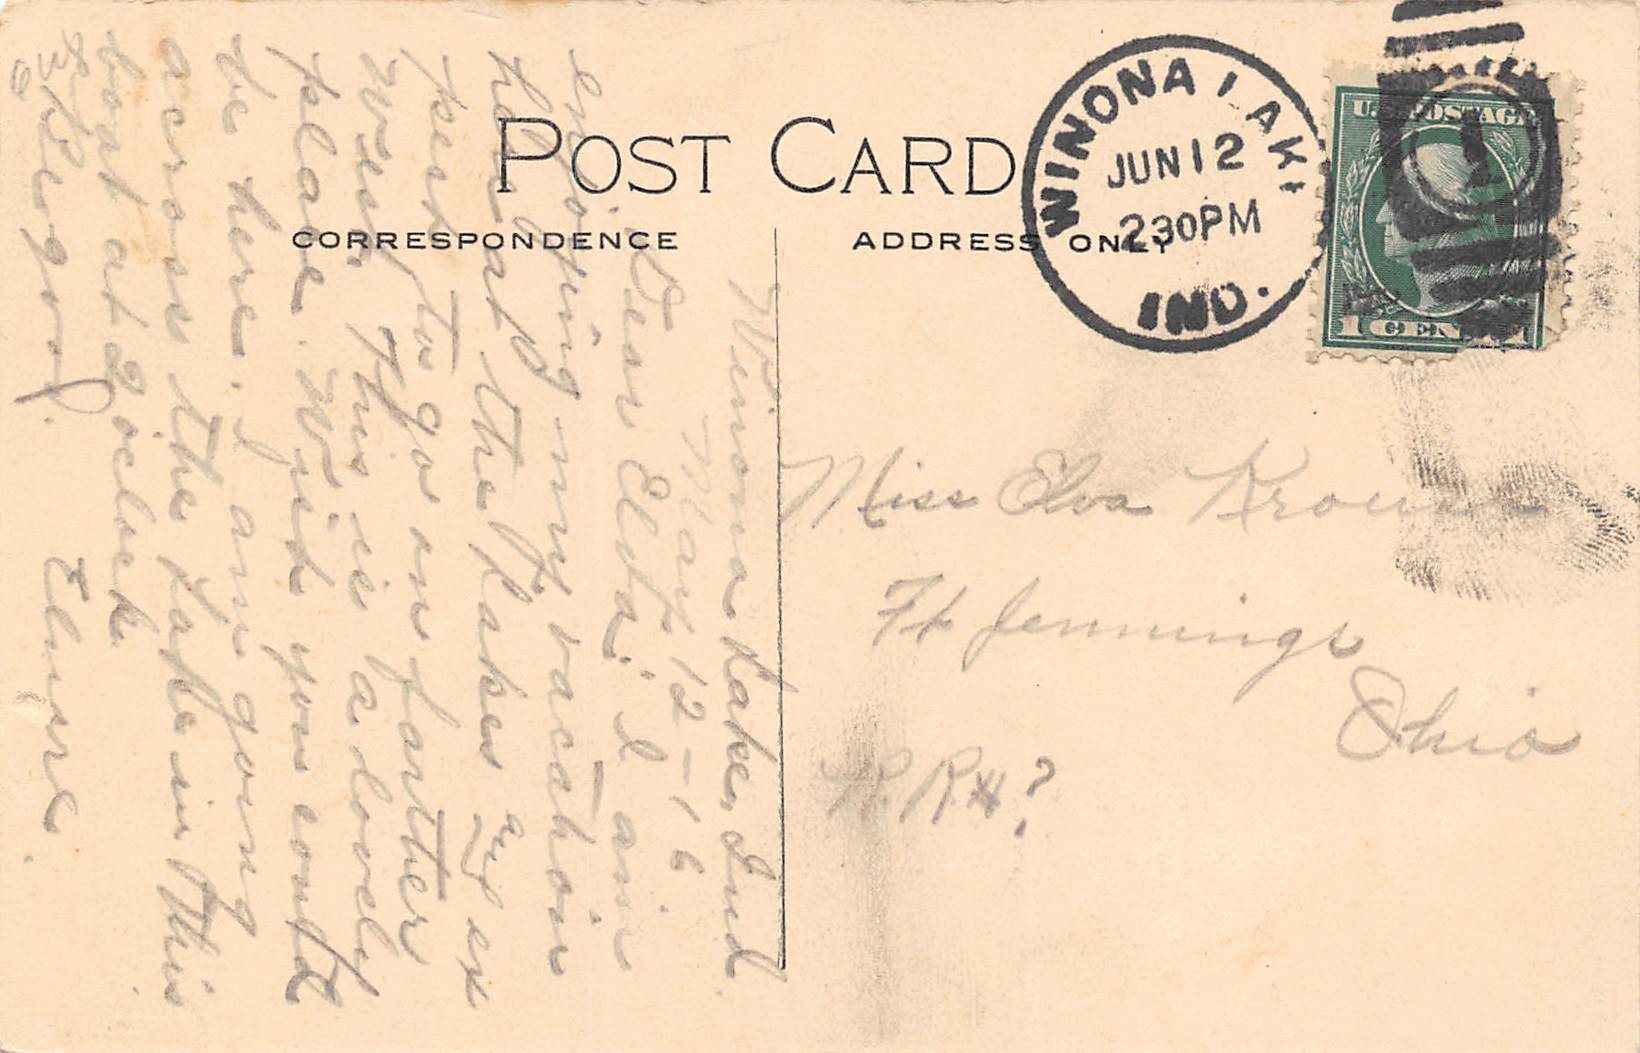 POST CARD
CORRESPONDENCE
ADDRESS ONLY
WINONA LAKE
JUN 12
230PM
IND.
U.S. POSTAGE
1 CENT 1
1
Miss Elva
Ft Jennings
Ohio
R.R.# ?
Winona Lake, Ind.
May 12-16
Dear Elva: I am
enjoying my vacation
here at the Lakes and ex
pect to go on farther
West. This is a lovely
place. Wish you could
be here. I am going
across the Lake in this
boat at 2 oclock